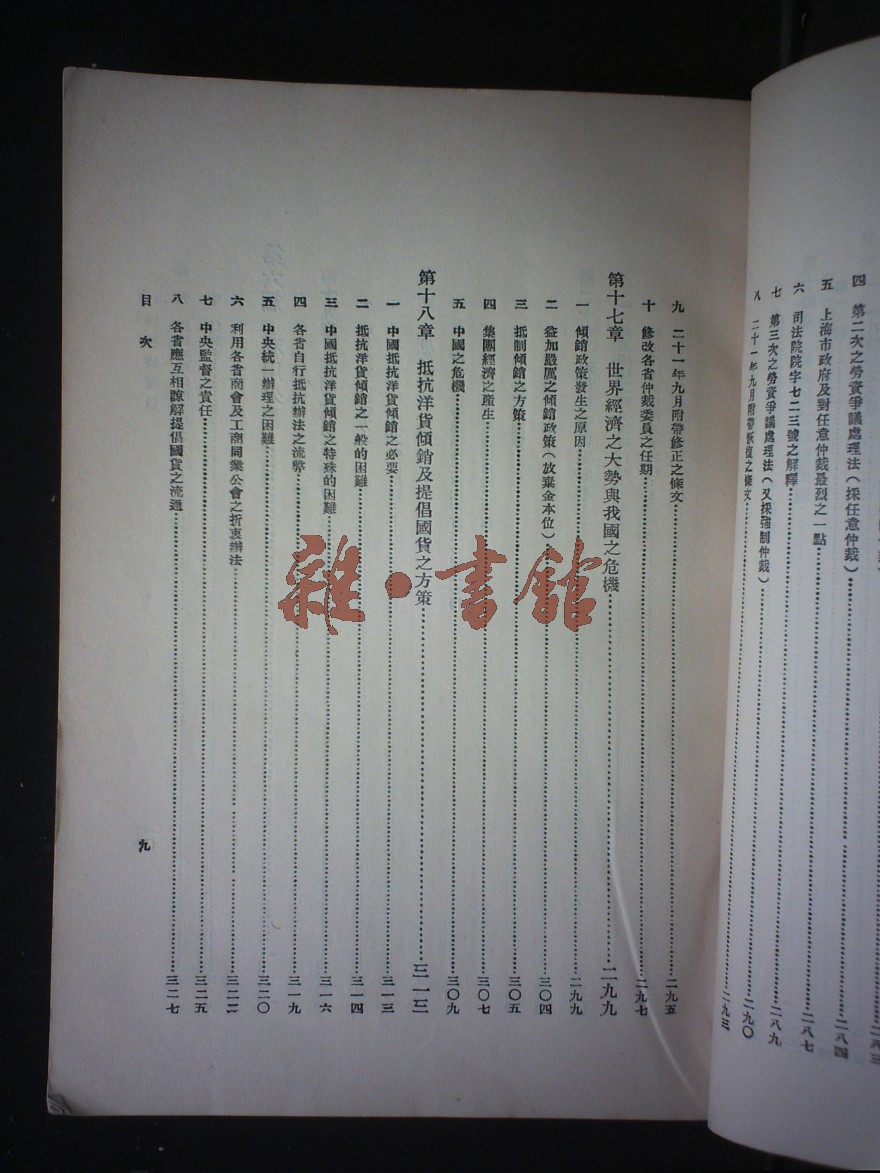 四　第二次之勞資爭議處理法（採任意仲裁）……二八四
五　上海市政府及對任意仲裁最烈之一點……二八七
六　司法院院字七二三號之解釋……二八九
七　第三次之勞資爭議處理法（又採強制仲裁）……二九〇
八　二十一年九月附帶恢復之條文……二九三
九　二十一年九月附帶修正之條文……二九五
十　修改各省仲裁委員之任期……二九七
第十七章　世界經濟之大勢與我國之危機……二九九
一　傾銷政策發生之原因……二九九
二　益加嚴厲之傾銷政策（放棄金本位）……三〇四
三　抵制傾銷之方策……三〇五
四　集團經濟之產生……三〇七
五　中國之危機……三〇九
第十八章　抵抗洋貨傾銷及提倡國貨之方策……三一三
一　中國抵抗洋貨傾銷之必要……三一三
二　抵抗洋貨傾銷之一般的困難……三一四
三　中國抵抗洋貨傾銷之特殊的困難……三一六
四　各省自行抵抗辦法之流弊……三一九
五　中央統一辦理之困難……三二〇
六　利用各省商會及工商同業公會之折衷辦法……三二二
七　中央監督之責任……三二五
八　各省應互相諒解提倡國貨之流通……三二七
目次
九
雜·書館